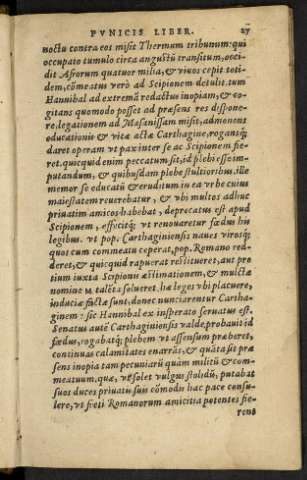 PVNICIS LIBER. 27
noctu contra eos misit Thermum tribunum: qui
occupato tumulo circa angustũ transitum, occi
dit Afrorum quatuor milia, & viuos cepit toti
dem, cõmeatus verò ad Scipionem detulit. tum
Hannibal ad extremã redactus inopiam, & co
gitans quomodo posset ad præsens res dispone-
re, legationem ad Masanissam misit, admonens
educationis & vitæ actæ Carthagine, rogansq́;
daret operam vt pax inter se ac Scipionem fie-
ret. quicquid enim peccatum sit, id plebi esse im-
putandum, & quibusdam plebe stultioribus. ille
memor se educatũ & eruditum in ea vrbe cuius
maiestatem reuerebatur, & vbi multos adhuc
priuatim amicos habebat, deprecatus est apud
Scipionem, effecitq́; vt renouaretur fœdus his
legibus. vt pop. Carthaginiensis naues virosq́;
quos cum commeatu ceperat, pop. Romano red-
deret, & quicquid rapuerat restitueret, aut pro
tium iuxta Scipionis æstimationem, & mulctæ
nomine M. talẽta solueret. hæ leges vbi placuere,
induciæ factæ sunt, donec nunciarentur Cartha-
ginem: sic Hannibal ex insperato seruatus est.
Senatus autẽ Carthaginiensis valde probauit id
fœdus, rogabatq́; plebem vt assensum præberet,
continuas calamitates enarrãs, & quãta sit præ
sens inopia tam pecuniarũ quàm militũ & com-
meatuum. quæ, vt solet vulgus stolidũ, putabat
suos duces priuatis suis cõmodis hac pace consu-
lere, vt freti Romanorum amicitia potentes fie-
rent